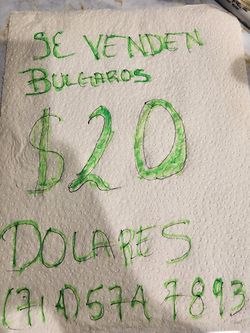 SE VENDEN
BULGAROS
$20
DOLARES
(714)574 7893